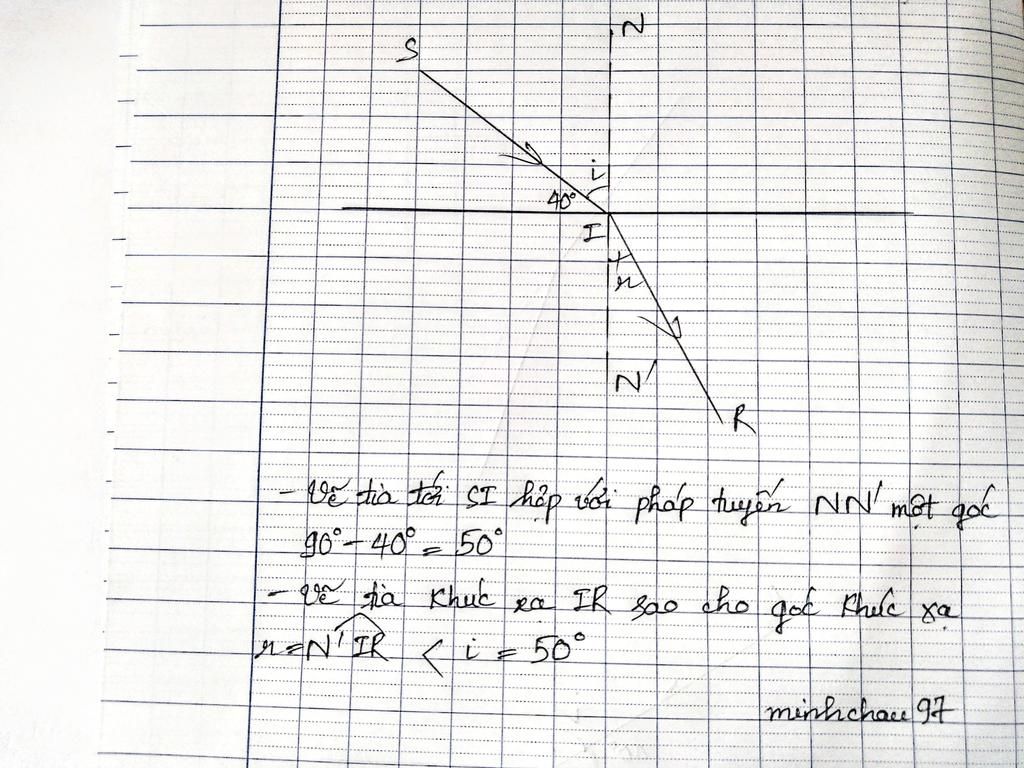 N
S
i
40°
I
r
N'
R
- Vẽ tia tới SI hợp với pháp tuyến NN' một góc
90° - 40° = 50°
- Vẽ tia khúc xạ IR sao cho góc khúc xạ
r = N'IR < i = 50°
minhchau97